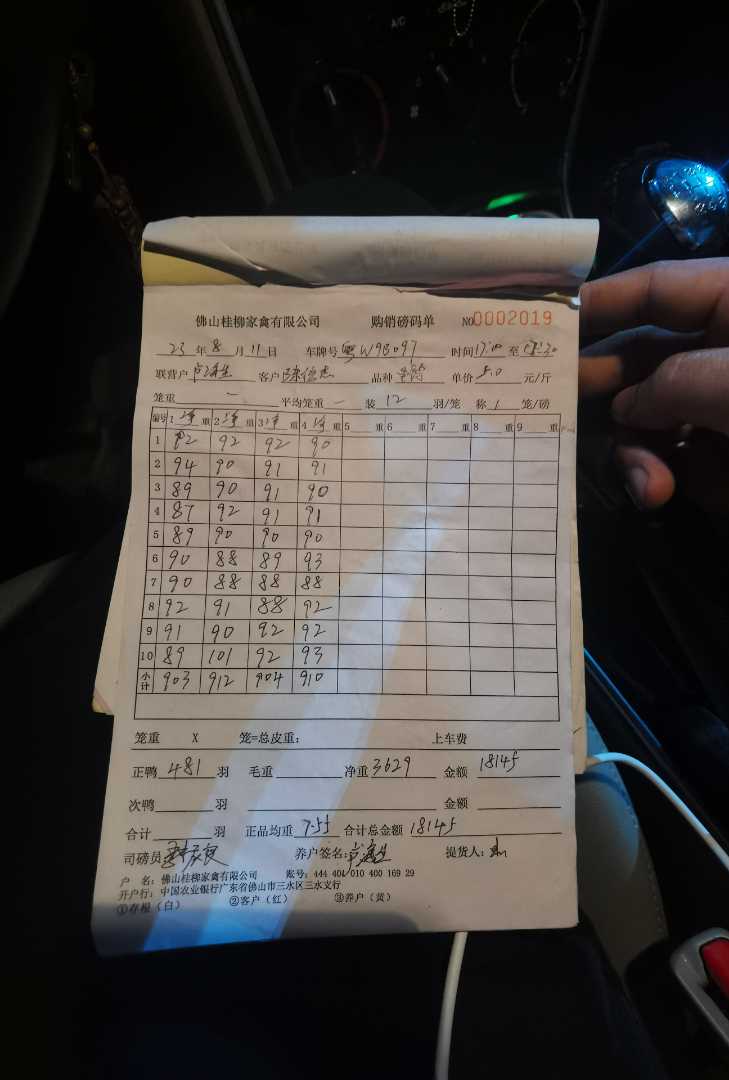 佛山桂柳家禽有限公司 购销磅码单 NO0002019
23 年 8 月 11 日 车牌号 粤W9B097 时间 17:00 至
联营户 客户 品种 单价 5.0 元/斤
笼重 - 平均笼重 - 装 12 羽/笼 称 1 笼/磅
编号 1 净 重 2 净 重 3 净 重 4 净 重 5 重 6 重 7 重 8 重 9 重
1 92 92 92 90
2 94 90 91 91
3 89 90 91 90
4 87 92 91 91
5 89 90 90 90
6 90 88 89 93
7 90 88 88 88
8 92 91 88 92
9 91 90 92 92
10 89 101 92 93
小计 903 912 904 910
笼重 X 笼=总皮重: 上车费
正鸭 481 羽 毛重 净重 3629 金额 18145
次鸭 羽 金额
合计 羽 正品均重 7.55 合计总金额 18145
司磅员 养户签名: 提货人:
户 名: 佛山桂柳家禽有限公司 账号: 444 404 010 400 169 29
开户行: 中国农业银行广东省佛山市三水区三水支行
①存根(白) ②客户(红) ③养户(黄)